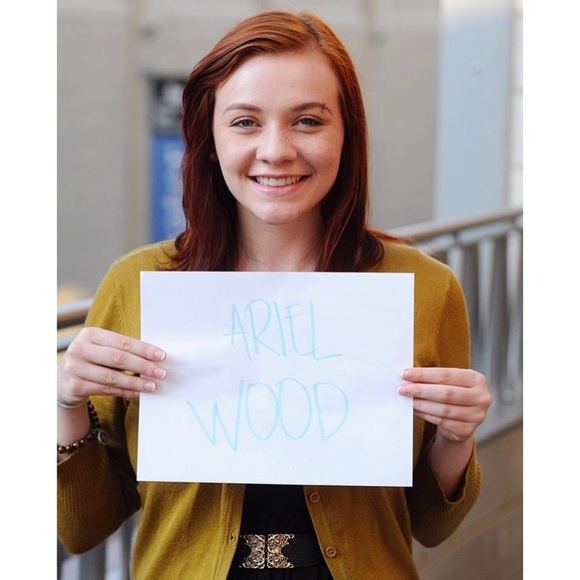 ARIEL
WOOD